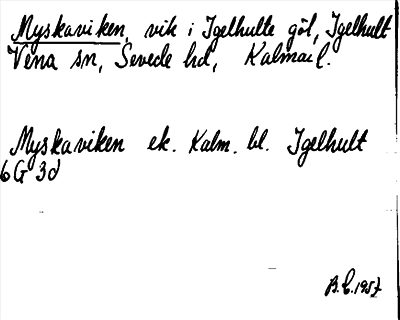 Myskaviken, vik i Igelhulte göl, Igelhult
Vena sn, Sevede hd, Kalmar l.
Myskaviken ek. Kalm. bl. Igelhult
6 G 3d
B.L. 1957